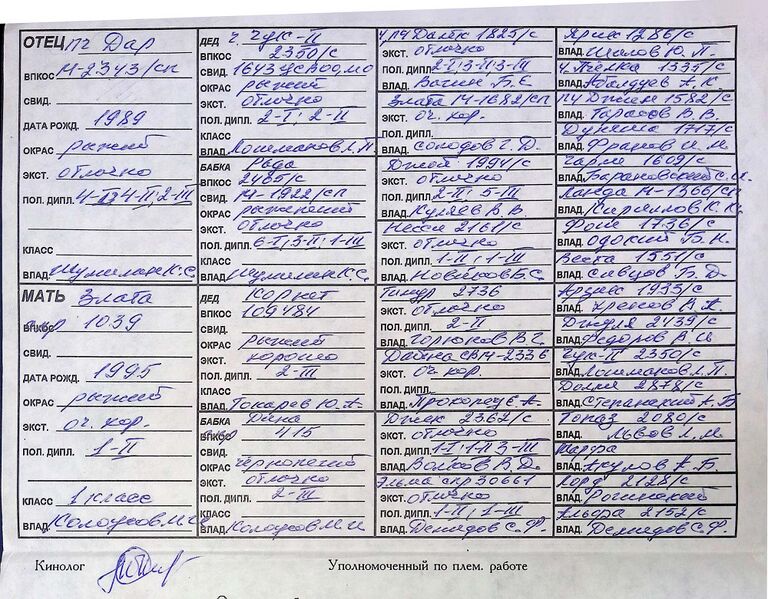 ОТЕЦ пч Дар
ВПКОС М-2343/сп
СВИД.
ДАТА РОЖД. 1989
ОКРАС рыжий
ЭКСТ. отлично
ПОЛ. ДИПЛ. 4-I; 4-II; 2-III
КЛАСС
ВЛАД. Шумилин К.С.
МАТЬ Злата
ВПКОС 1039
СВИД.
ДАТА РОЖД. 1995
ОКРАС рыжий
ЭКСТ. оч. хор.
ПОЛ. ДИПЛ. 1-II
КЛАСС 1 класс
ВЛАД.
ДЕД ч. Чук-II
ВПКОС 2350/с
СВИД.
ОКРАС рыжий
ЭКСТ. отлично
ПОЛ. ДИПЛ. 2-I; 2-II
КЛАСС
ВЛАД.
БАБКА Рада
ВПКОС 2465/с
СВИД. М-1922/сп
ОКРАС
ЭКСТ. отлично
ПОЛ. ДИПЛ. 6-I; 3-II; 1-III
КЛАСС
ВЛАД. Шумилин К.С.
ДЕД Корнет
ВПКОС 109484
СВИД.
ОКРАС рыжий
ЭКСТ. хорошо
ПОЛ. ДИПЛ. 2-III
КЛАСС
ВЛАД. Токарев Ю.А.
БАБКА Дина
ВПКОС 415
СВИД.
ОКРАС
ЭКСТ. отлично
ПОЛ. ДИПЛ. 2-III
КЛАСС
ВЛАД.
1825/с
ЭКСТ. отлично
ПОЛ. ДИПЛ. 2-I; 3-II; 3-III
ВЛАД. Вагин Б.Е.
Злата М-1682/сп
ЭКСТ. оч. хор.
ПОЛ. ДИПЛ.
ВЛАД. Солодов Г.Д.
Джой 1994/с
ЭКСТ. отлично
ПОЛ. ДИПЛ. 2-II; 5-III
ВЛАД. Куляев В.В.
Несси 2161/с
ЭКСТ. отлично
ПОЛ. ДИПЛ. 1-II; 1-III
ВЛАД. Новиков Б.С.
Тимур 2736
ЭКСТ. отлично
ПОЛ. ДИПЛ. 2-II
ВЛАД. Горюнов В.Г.
Дайна СВМ-2336
ЭКСТ. оч. хор.
ПОЛ. ДИПЛ.
ВЛАД.
Джек 2362/с
ЭКСТ. отлично
ПОЛ. ДИПЛ. 1-I; 1-II 3-III
ВЛАД. Волков В.Д.
Эльма скр 30661
ЭКСТ. отлично
ПОЛ. ДИПЛ. 1-II; 1-III
ВЛАД. Демидов С.Ф.
1286/с
ВЛАД. Шалов Ю.П.
ч. Пчелка 1335/с
ВЛАД. Абалдуев А.К.
пч Джим 1582/с
ВЛАД. Тарасов В.В.
1717/с
ВЛАД.
Чарли 1609/с
ВЛАД. Барановский С.И.
Ланда М-1366/сп
ВЛАД. Кириллов К.К.
1156/с
ВЛАД.
Веста 1551/с
ВЛАД. Сивцов Б.Д.
1933/с
ВЛАД. Хренов В.А.
Джуля 2439/с
ВЛАД. Федоров В.И.
Чук-II 2350/с
ВЛАД.
2878/с
ВЛАД.
Топаз 2080/с
ВЛАД. Львов Л.М.
Марфа
ВЛАД. Акулов А.Б.
Лорд 2128/с
ВЛАД. Рогинский
Ульфа 2152/с
ВЛАД. Демидов С.Ф.
Кинолог
Уполномоченный по плем. работе